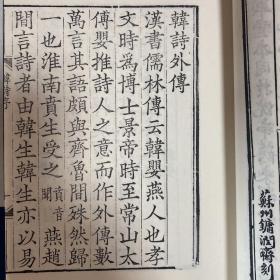 韓詩外傳
漢書儒林傳云韓嬰燕人也孝
文時爲博士景帝時至常山太
傅嬰推詩人之意而作外傳數
萬言其語頗與齊魯間殊然歸
一也淮南賁生受之賁音肥燕趙
間言詩者由韓生韓生亦以易
蘇州鏞潤齋刻